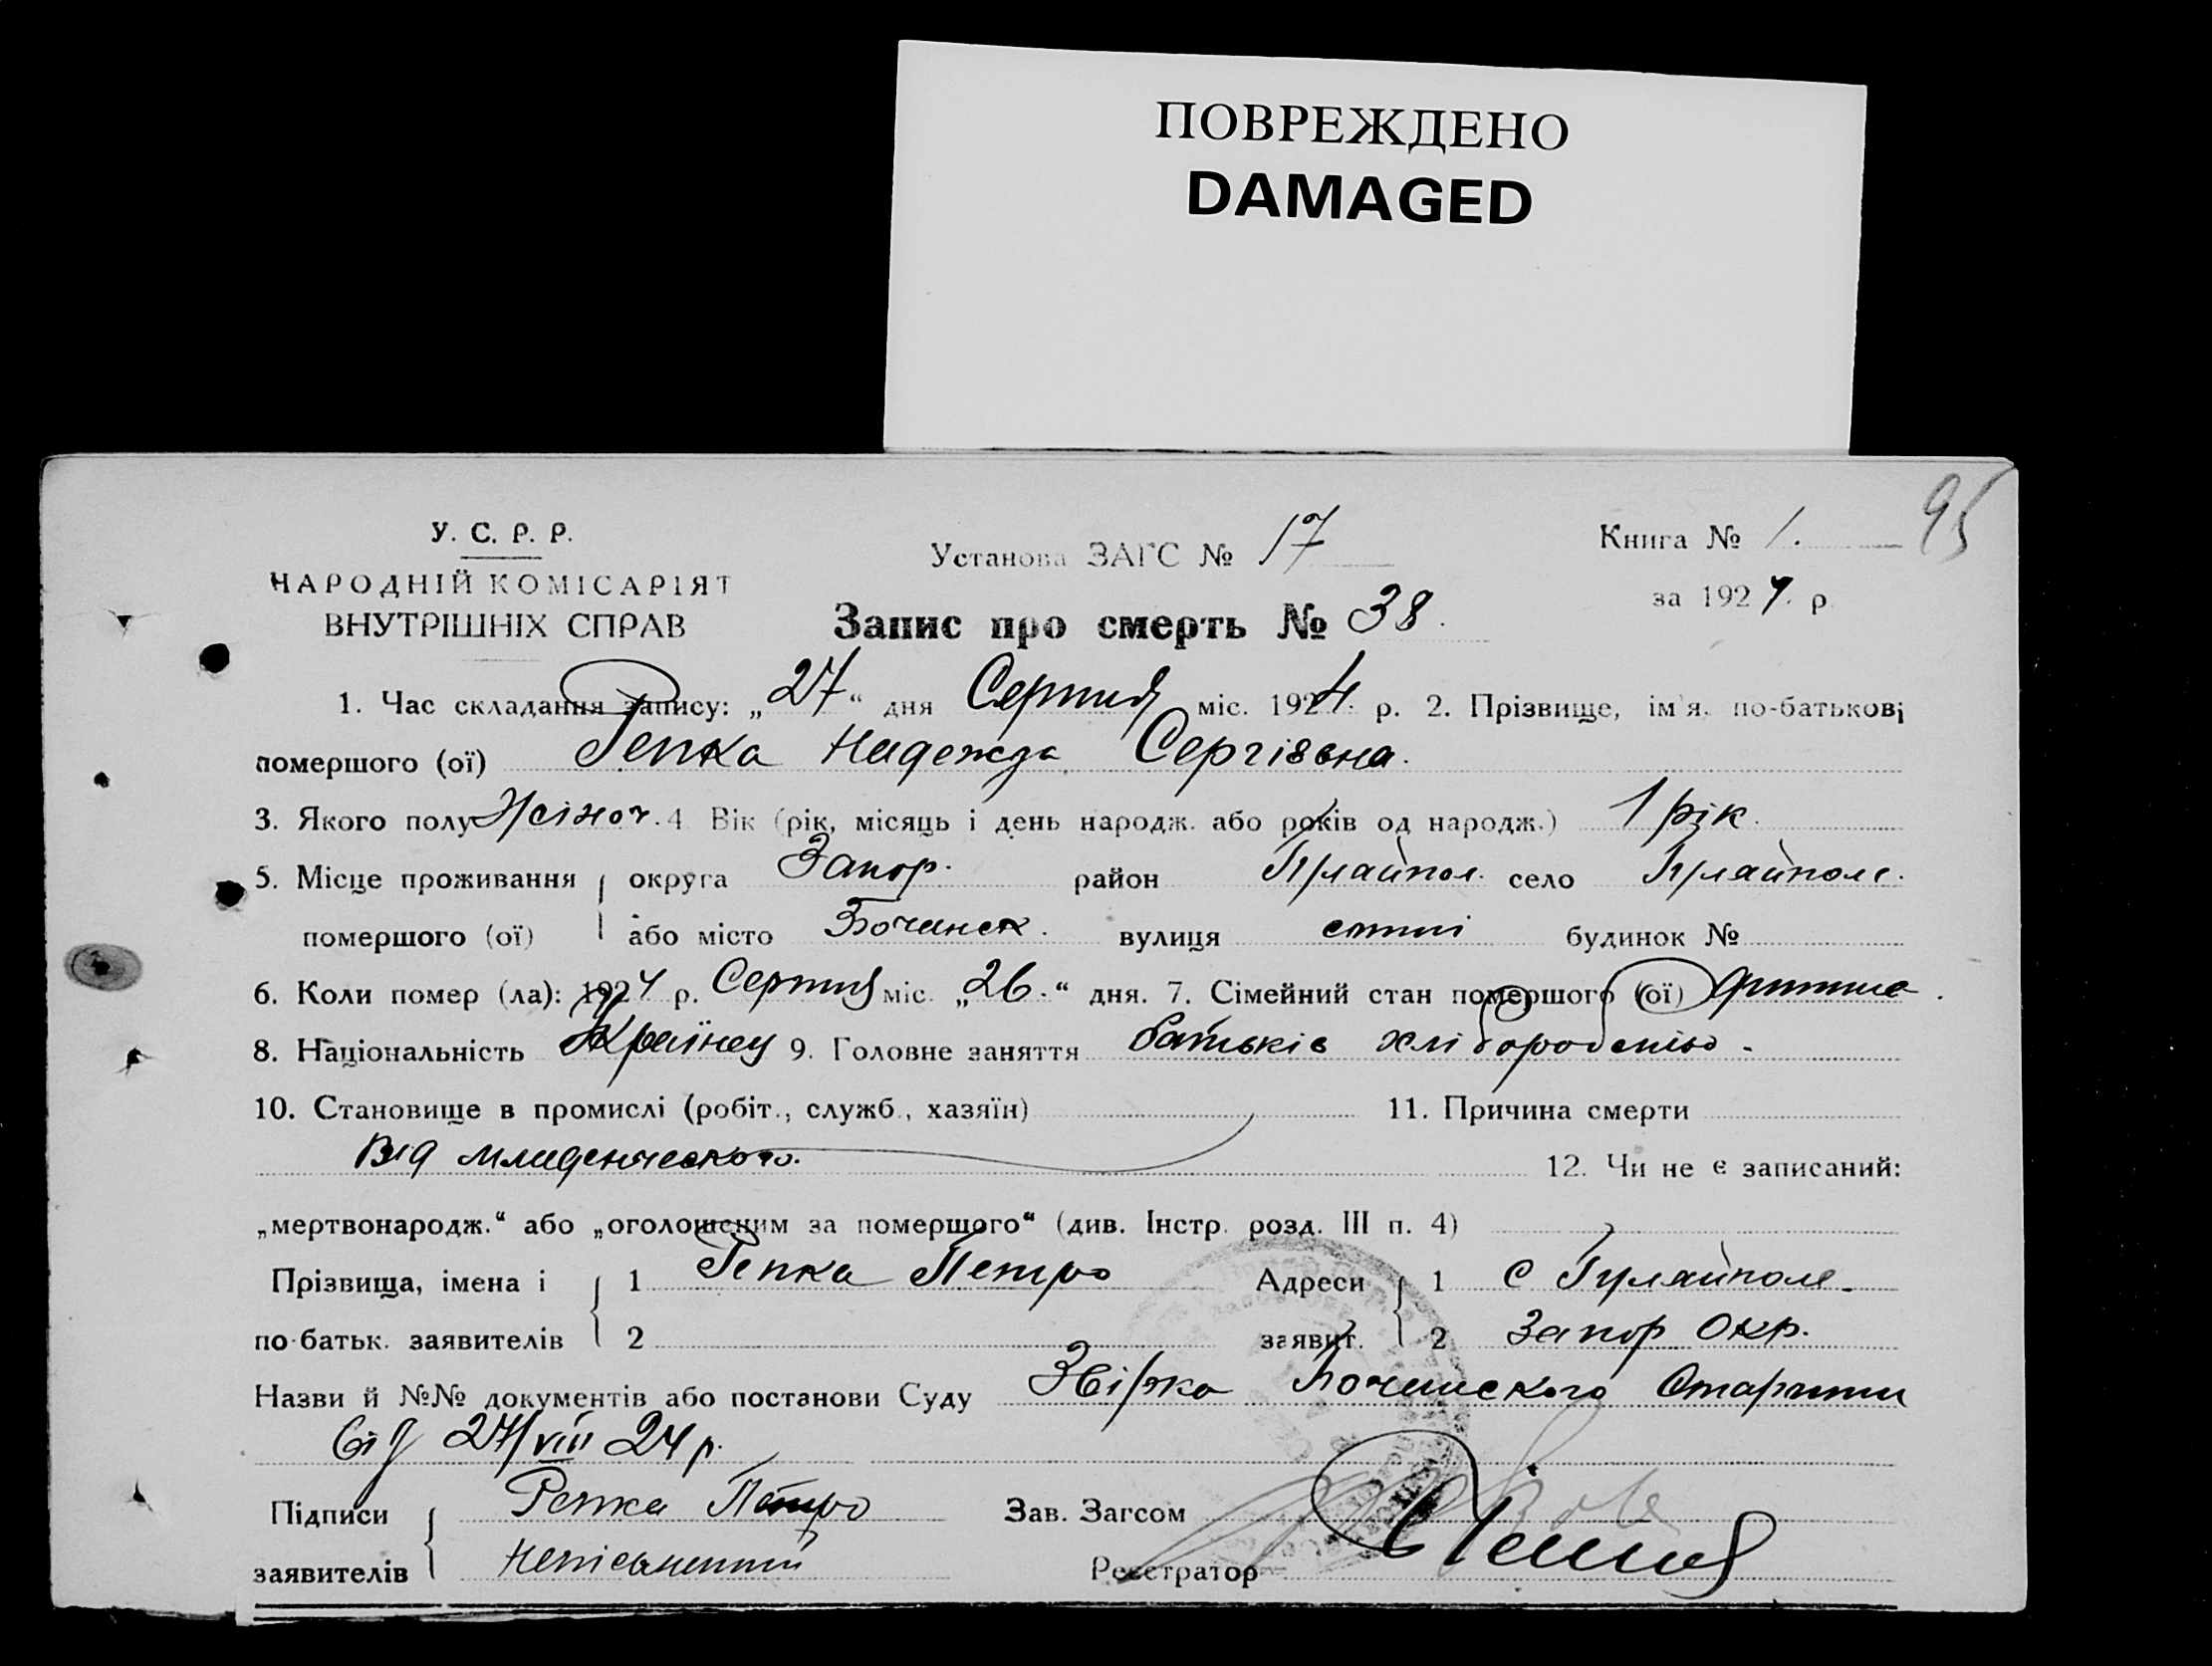 ПОВРЕЖДЕНО
DAMAGED
95
У. С. Р. Р.
НАРОДНІЙ КОМІСАРІЯТ
ВНУТРІШНІХ СПРАВ
Установа ЗАГС № 17
Книга № 1.
за 1924 р.
Запис про смерть № 38.
1. Час складання запису: „27“ дня Серпня міс. 1924 р. 2. Прізвище, ім'я, по-батькові
помершого (ої) Репка Надежда Сергіевна.
3. Якого полу Жіноч. 4 Вік (рік, місяць і день народж. або років од народж.) 1 рік.
5. Місце проживання округа Запор. район Гуляйпол. село Гуляйполе.
помершого (ої) або місто вулиця будинок №
6. Коли помер (ла): 1924 р. Серпня міс. „26.“ дня. 7. Сімейний стан помершого (ої) дитина.
8. Національність Українец 9. Головне заняття батьків хліборобство.
10. Становище в промислі (робіт., служб., хазяїн) 11. Причина смерти
Від младенческого.
12. Чи не є записаний:
„мертвонародж.“ або „оголошеним за помершого“ (див. Інстр. розд. III п. 4)
Прізвища, імена і 1 Репка Петро Адреси 1 С Гуляйполе.
по-батьк. заявителів 2 заявит. 2 Запор Окр.
Назви й №№ документів або постанови Суду
від 27/VIII 24 р.
Підписи Репка Петро Зав. Загсом
заявителів Неписьменний Реєстратор